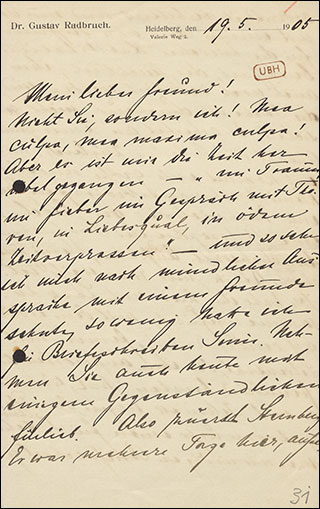 Dr. Gustav Radbruch.
Heidelberg, den 19. 5. 1905
UBH
Mein lieber Freund!
Nicht Sie, sondern ich! Mea
culpa, mea maxima culpa!
Aber es ist mir die Zeit her
übel gegangen – „im Traum,
im Fieber, im Gespräch mit Tho-
ren, in Liebesqual, im öden
Zeitverprassen" – und so sehr
ich mich nach mündlicher Aus
sprache mit einem Freunde
sehnte, sowenig hatte ich
Briefschreiben Sinn. Neh-
men Sie auch heute mit
einigem Gegenständlichen
fürlieb. Also zuerst
Er war mehrere Tage hier,
31